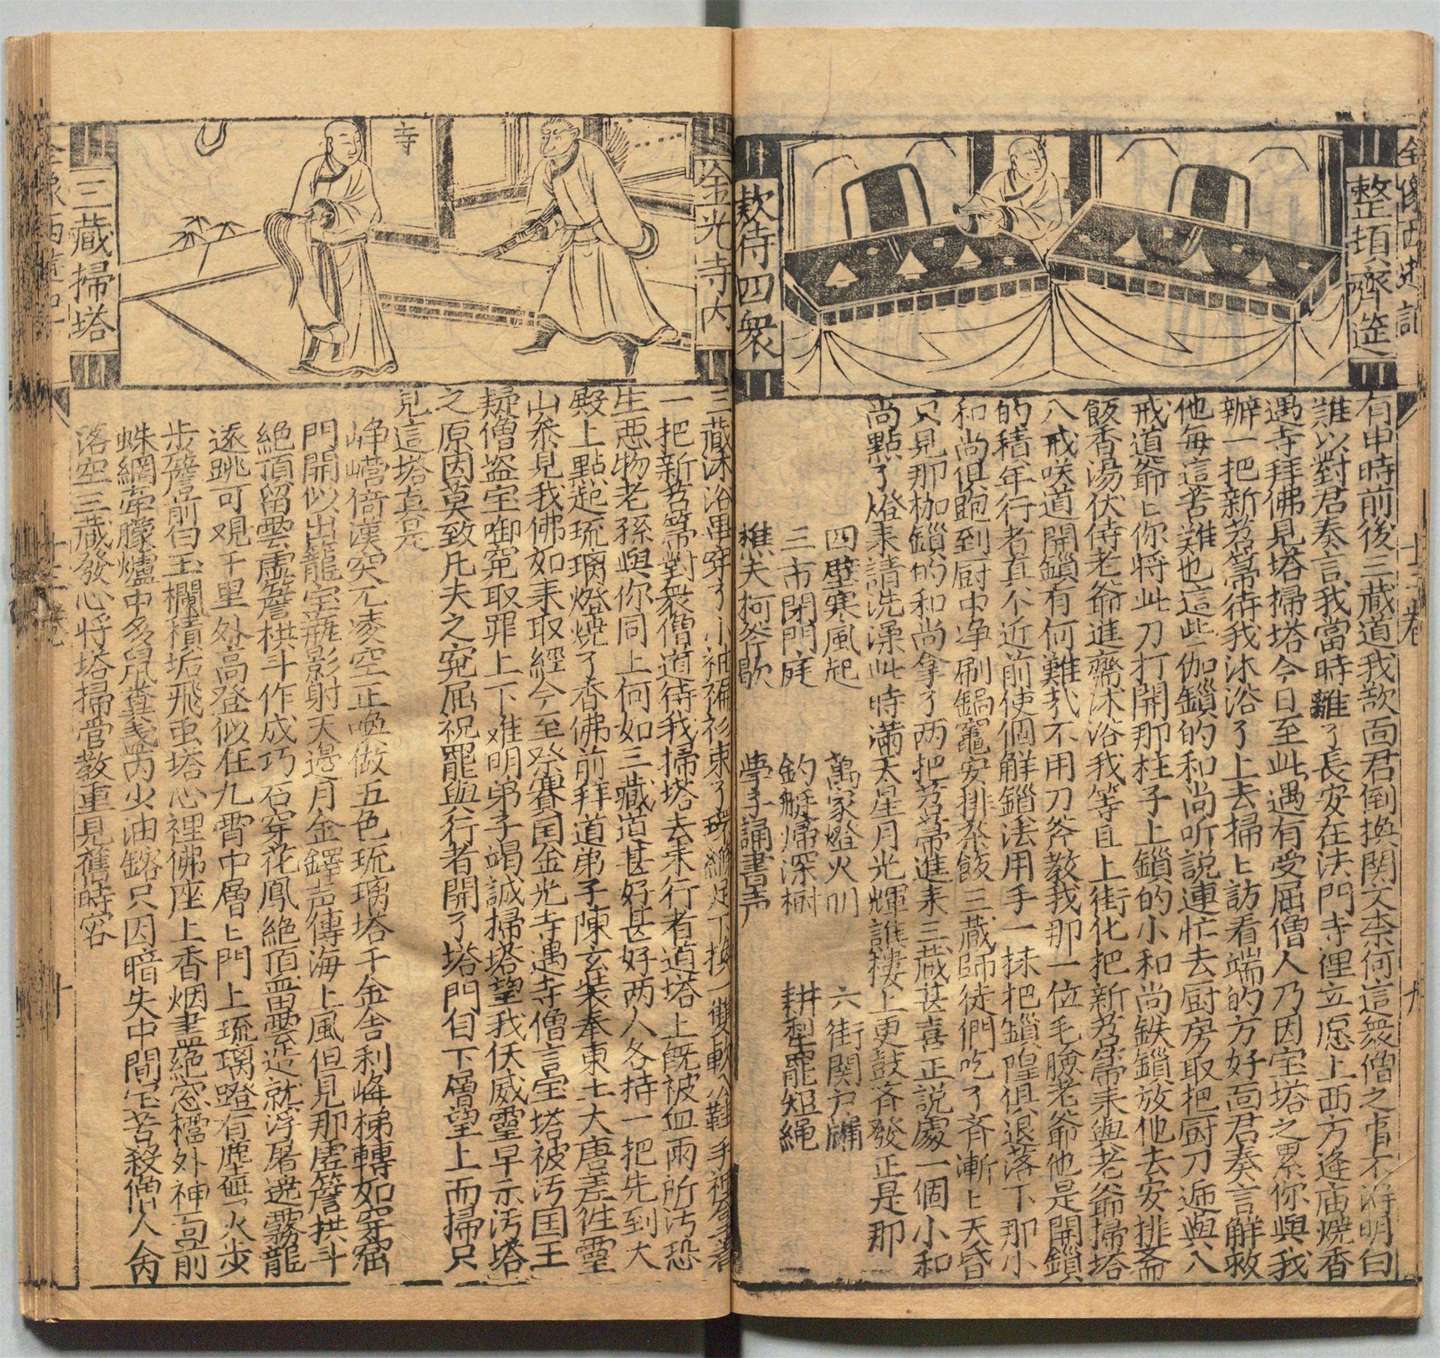 全像西遊記
十三卷
九
整頓齋筵
欵待四衆
有日時前後三藏道我欵面君倒換関文柰何這衆僧之事不淂明白
難以對君奏言我當時離了長安在法門寺裡立愿上西方逢庙燒香
遇寺拜佛見塔掃塔今日至此遇有受屈僧人乃因宝塔之累你與我
辦一把新苕箒待我沐浴了上去掃上訪看端的方好面君奏言解救
他每這苦难也這些伽鎖的和尚听說連忙去厨房取把厨刀遞與八
戒道爺上你將此刀打開那柱子上鎖的小和尚鉄鎖放他去安排斋
飯香湯伏侍老爺進齋沐浴我等且上街化把新苕箒来與老爺掃塔
八戒咲道開鎖有何難哉不用刀斧教我那一位毛臉老爺他是開鎖
的積年行者真个近前使個解鎖法用手一抹把鎖隍俱退落下那小
和尚俱跑到厨中净刷鍋竈安排茶飯三藏師徒們吃了斉漸上天昏
只見那枷鎖的和尚拿了两把苕箒進来三藏甚喜正説處一個小和
尚點了燈来請洗澡此時滿天星月光輝譙樓上更鼓斉發正是那
四壁寒風起 萬家燈火明 六街関户牖
三市閉門庭 釣艇歸深樹 耕犁罷短繩
樵夫柯斧歇 學子誦書声
金光寺內
寺
三藏掃塔
三藏沐浴畢穿了小袖褊衫束了環縧足下換一雙軟公鞋手裡拿着
一把新苕箒對衆僧道待我掃塔去来行者道塔上既被血雨所汚恐
生惡物老孫與你同上何如三藏道甚好甚好两人各持一把先到大
殿上點起琉璃燈燒了香佛前拜道弟子陳玄奘奉東土大唐差徃靈
山叅見我佛如来取經今至祭賽国金光寺遇寺僧言宝塔被汚国王
疑僧盗宝啣寃取罪上下难明弟子竭誠掃塔望我仸威靈早示汚塔
之原因莫致凡夫之寃屈祝罷與行者開了塔門自下層望上而掃只
見這塔真是
峥嶸倚漢突兀凌空正喚做五色琉璃塔千金舍利峰梯轉如穿窟
門開似出籠宝瓶影射天邉月金鐸声傳海上風但見那虚簷拱斗
絶頂留雲虚簷栱斗作成巧石穿花鳳絶頂留雲造就浮屠遶霧龍
逐眺可覌千里外高登似在九霄中層上門上琉璃燈有塵無火步
步簷前白玉欄積垢飛虫塔心裡佛座上香烟盡絶窓櫺外神靣前
蛛網牽朦爐中多鼠糞盞內少油鎔只因暗失中間宝苦殺僧人命
落空三藏發心將塔掃管教重見舊時容